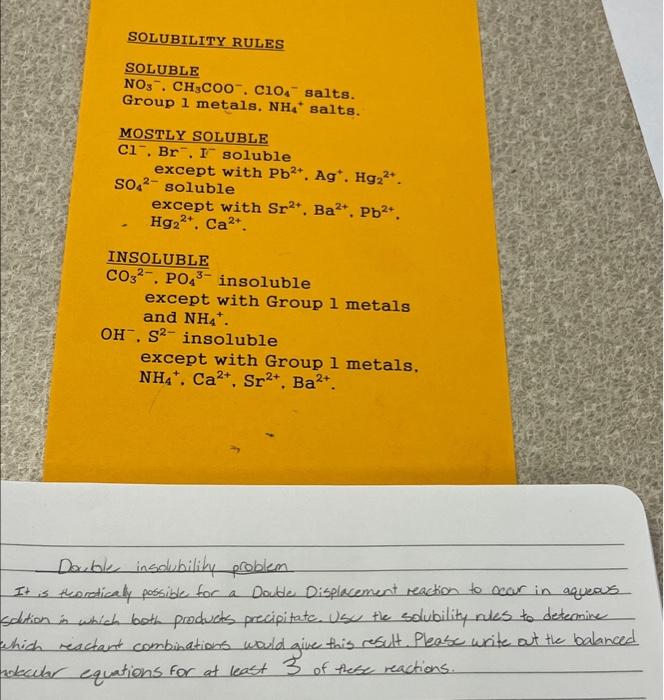 SOLUBILITY RULES
SOLUBLE
NO₃⁻, CH₃COO⁻, ClO₄⁻ salts.
Group 1 metals, NH₄⁺ salts.
MOSTLY SOLUBLE
Cl⁻, Br⁻, I⁻ soluble
except with Pb²⁺, Ag⁺, Hg₂²⁺.
SO₄²⁻ soluble
except with Sr²⁺, Ba²⁺, Pb²⁺,
Hg₂²⁺, Ca²⁺.
INSOLUBLE
CO₃²⁻, PO₄³⁻ insoluble
except with Group 1 metals
and NH₄⁺.
OH⁻, S²⁻ insoluble
except with Group 1 metals,
NH₄⁺, Ca²⁺, Sr²⁺, Ba²⁺.
Double insolubility problem
It is theoretically possible for a Double Displacement reaction to occur in aqueous
solution in which both products precipitate. Use the solubility rules to determine
which reactant combinations would give this result. Please write out the balanced
molecular equations for at least 3 of these reactions.